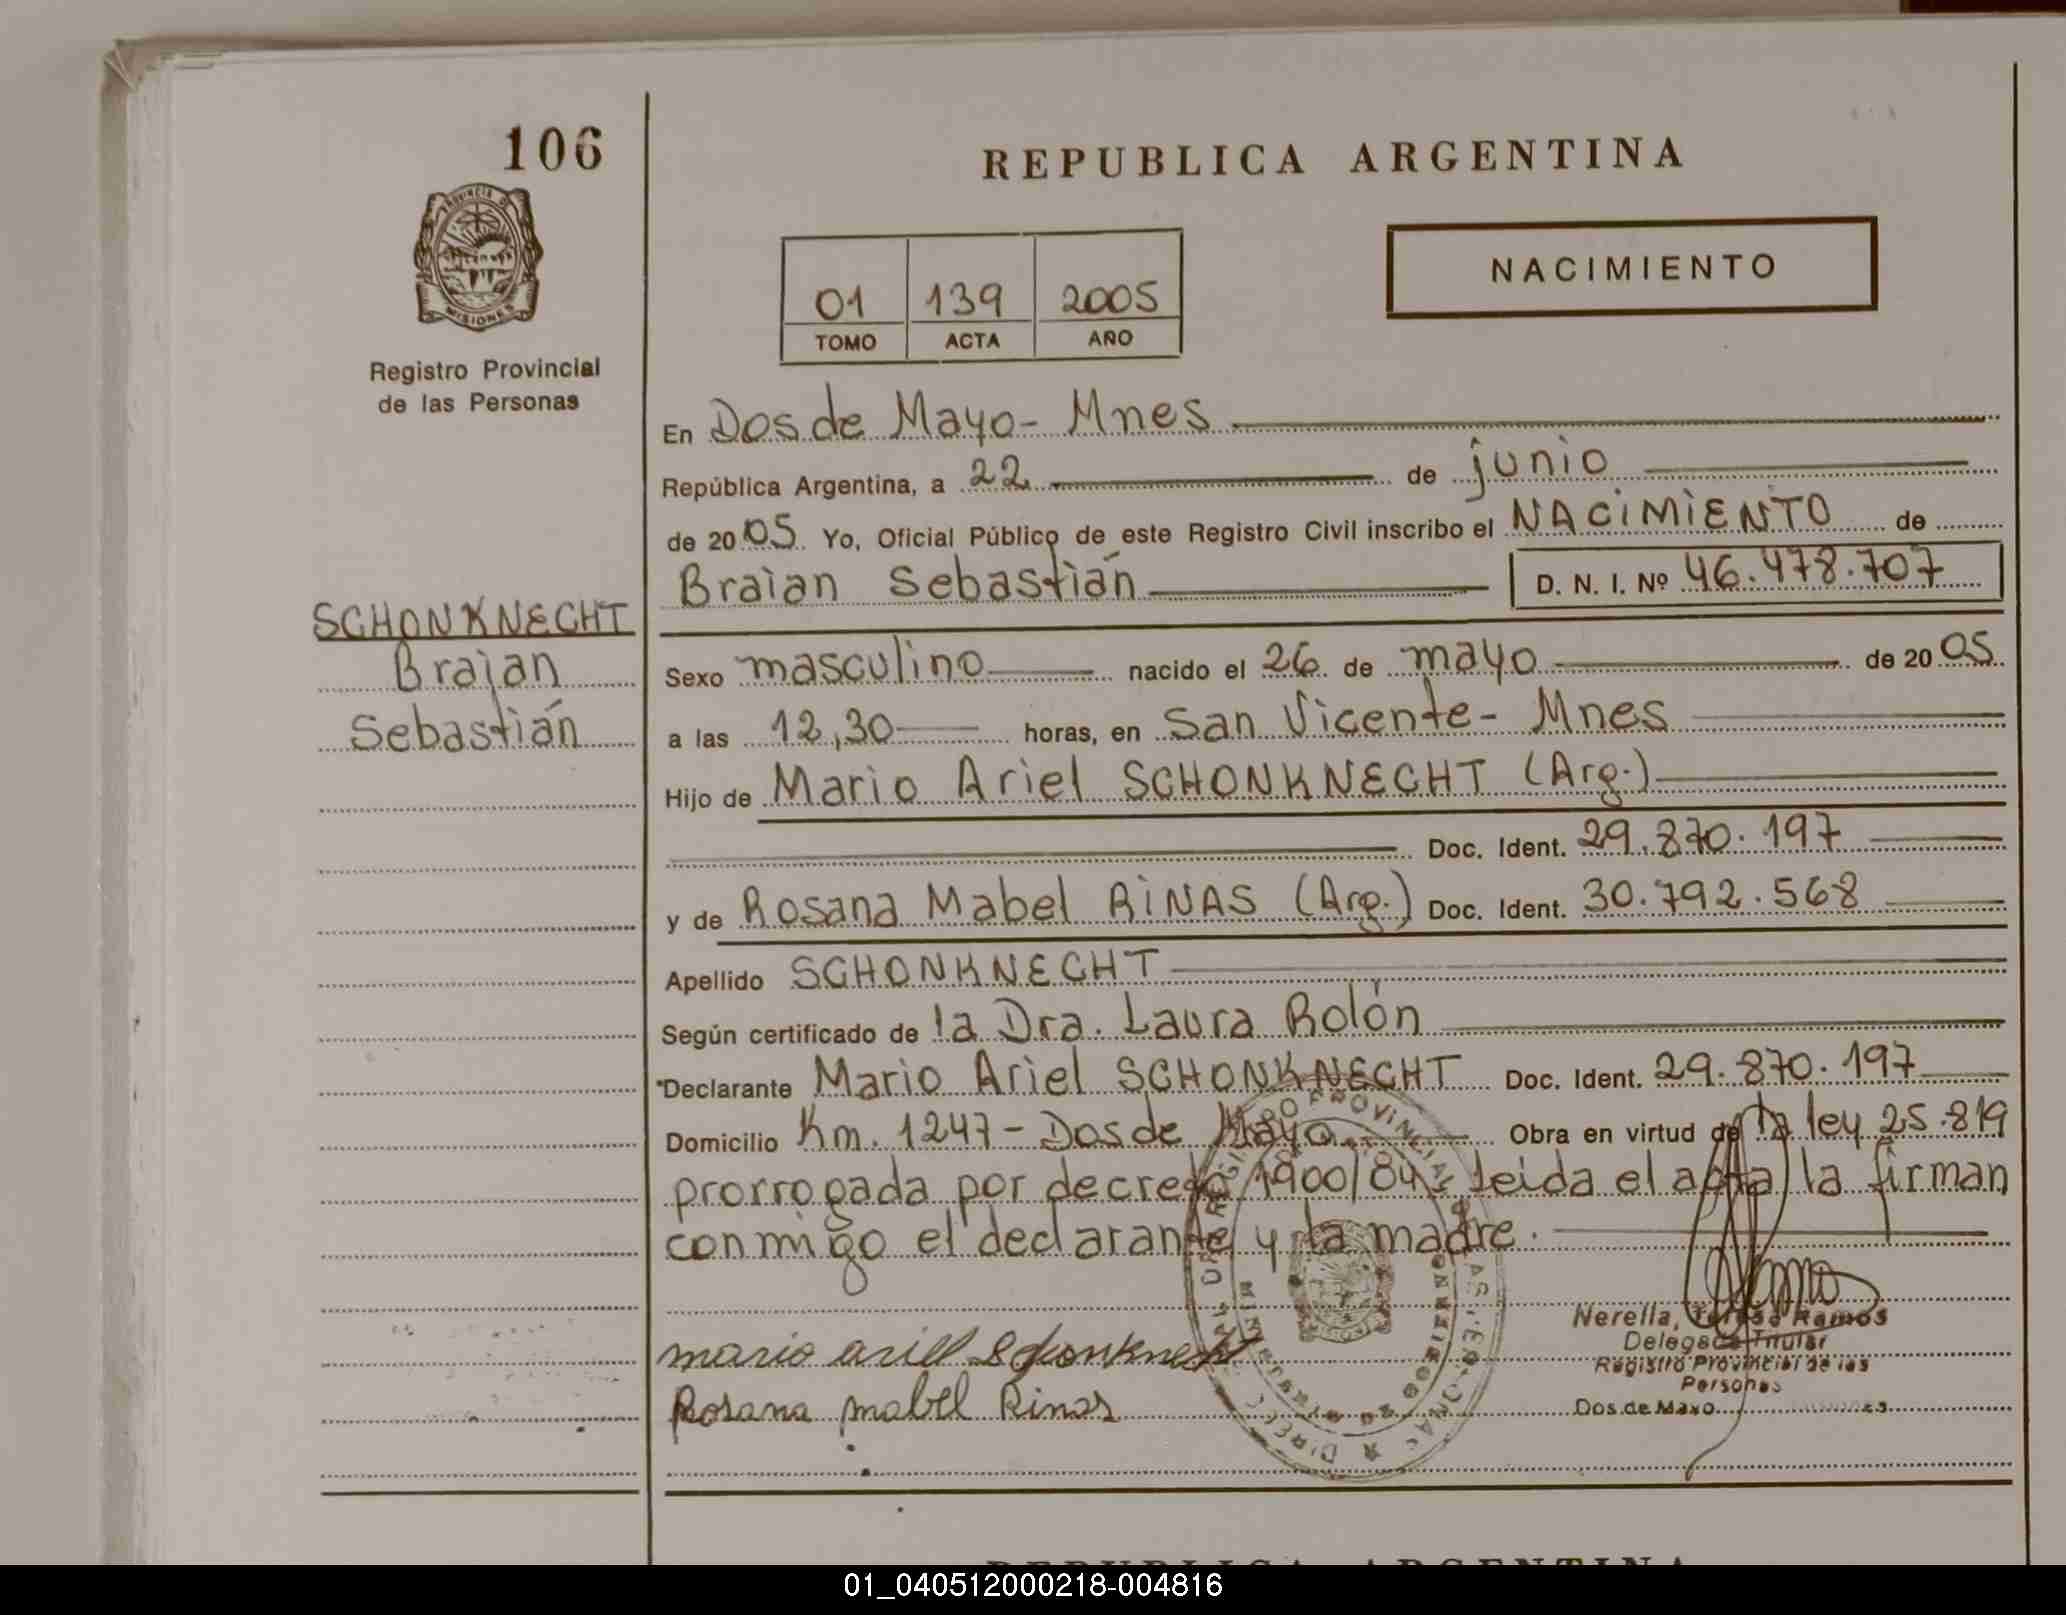 106
REPUBLICA ARGENTINA
PROVINCIA DE
MISIONES
Registro Provincial
de las Personas
01 139 2005
TOMO ACTA AÑO
NACIMIENTO
En Dos de Mayo - Mnes
República Argentina, a 22 de junio
de 2005 Yo, Oficial Público de este Registro Civil inscribo el NACIMIENTO de
Braian Sebastián D. N. I. Nº 46.478.707
SCHONKNECHT
Braian
Sebastián
Sexo masculino nacido el 26 de mayo de 2005
a las 12,30 horas, en San Vicente - Mnes
Hijo de Mario Ariel SCHONKNECHT (Arg.)
Doc. Ident. 29.870.197
y de Rosana Mabel RINAS (Arg.) Doc. Ident. 30.792.568
Apellido SCHONKNECHT
Según certificado de la Dra. Laura Rolón
Declarante Mario Ariel SCHONKNECHT Doc. Ident. 29.870.197
Domicilio Km. 1247 - Dos de Mayo Obra en virtud de la ley 25.819
prorrogada por decreto 1900/04; leida el acta la firman
conmigo el declarante y la madre.
mario ariel Schonknecht
Rosana mabel Rinas
Nerella, Teresa Ramos
Delegada Titular
Registro Provincial de las
Personas
Dos de Mayo
REPUBLICA ARGENTINA
01_040512000218-004816